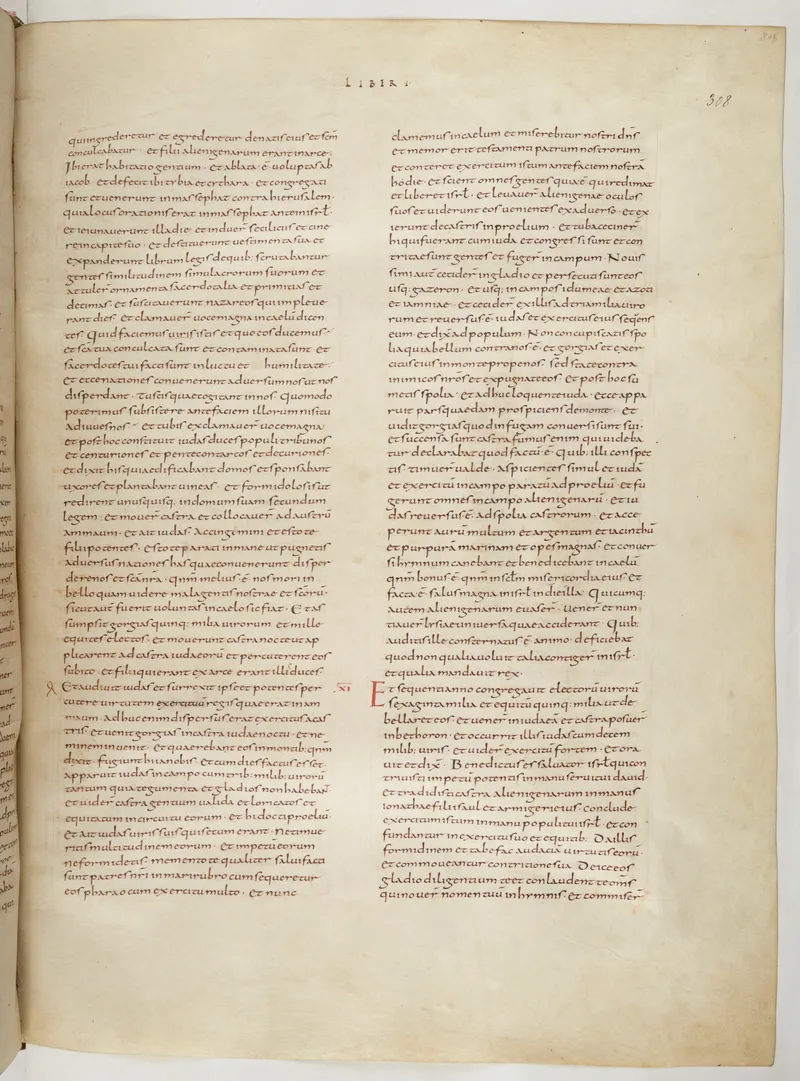 LIBER I
308
quiingrederetur et egrederetur denatis eius et scm
conculcabatur · et filii alienigenarum erant inarce ·
Ibi erat habitatio gentium · et ablata · ē · uoluptas ab
iacob · et defecit ibi tibia et cythara · et congregati
sunt et uenerunt inmasphat contra hierusalem ·
quia locus orationis erat inmasphat ante inisrl ·
et ieiunauerunt illa die · et induer̄ se ciliciis et cine
re incapite suo · et desciderunt uestimenta sua et
expanderunt librum legis de quib; scrutabantur
gentes similitudinem simulacrorum suorum et
attuler̄ ornamenta sacerdotalia et primitias et
decimas · et suscitauerunt nazareos qui impleue
rant dies · et clamauer̄ uoce magna incaelū dicen
tes · Quid faciemus istis et quo eos ducemus ·
et sca tua conculcata sunt et contaminata sunt et
sacerdotes tui facti sunt in luctu et humilitate ·
et ecce nationes conuenerunt aduersum nos ut nos
disperdant · Tu scis quae cogitant in nos · Quomodo
poterimus subsistere ante faciem illorum nisi tu
adiuues nos · et tubis exclamauer̄ uoce magna ·
et post hoc constituit iudas duces populi tribunos
et centuriones et pentecontarcos et decuriones ·
et dixit his qui aedificabant domos et sponsabant
uxores et plantabant uineas · et formidolosis ut
redirent unusquisq; in domum suam secundum
legem · et mouer̄ castra et collocauer̄ ad austrū
ammaum · et ait iudas · Accingimini et estote
filii potentes · estote parati in mane ut pugnetis
aduersus nationes has quae conuenerunt disper
dere nos et sca nra · qnm melius · ē · nos mori in
bello quam uidere mala gentis nostrae et scoru ·
sicut aut fuerit uoluntas in caelo sic fiat · Et as
sumpsit gorgias quinq; milia uirorum et mille
equites electos · et mouerunt castra nocte ut ap
plicarent ad castra iudaeorū et percuterent eos
subito · et filii qui erant ex arce erant illi duces ·
Et audiuit iudas et surrexit ipse et potentes per
cutere uirtutem exercituū regis quae erat in am
maum · Adhuc enim dispersus erat exercitus a cas
tris · et uenit gorgias in castra iudae noctu · et ne
minem inuenit · et quaerebant eos in montib; qnm
dixit · fugiunt hi a nobis · et cum dies factus esset ·
apparuit iudas in campo cum trib; milib; uirorū
tantum qui tegumenta et gladios non habebant
et uider̄ castra gentium ualida et loricatos et
equitatum in circuitu eorum · et hi docti proeliū ·
et ait iudas uiris suis qui secum erant · Ne timue
ritis multitudinem eorum · et impetū eorum
ne formidetis · mementote qualiter salui facti
sunt patres nri in mari rubro cum sequeretur
eos pharao cum exercitu multo · et nunc
clamemus in caelum et miserebitur nostri dns
et memor erit testamenti patrum nostrorum
et conteret exercitum istum ante faciem nostrā
hodie · et scient omnes gentes quia · ē · qui redimat
et liberet isrl · et leuauer̄ alienigenae oculos
suos et uiderunt eos uenientes ex aduerso · et ex
ierunt de castris in proelium · et tuba ceciner̄
hi qui fuerant cum iuda et congressi sunt et con
tritae sunt gentes et fuger̄ in campum · Nouis
simi aut̄ cecider̄ in gladio et persecuti sunt eos
usq; gazeron · et usq; in campos idumeae et azoti
et iamniae · et ceciderunt ex illis ad tria milia uiro
rum et reuersus · ē · iudas et exercitus eius sequens
eum · et dixit ad populum · Non concupiscatis spo
lia quia bellum contra nos · ē · et gorgias et exer
citus eius in monte prope nos · sed state contra
inimicos nros et expugnate eos · et post hoc su
metis spolia · et adhuc loquente iuda · ecce appa
ruit pars quaedam prospiciens de monte · et
uidit gorgias quod in fugam conuersi sunt sui ·
et succensa sunt castra fumus enim qui uideba
tur declarabat quod factū · ē · Quib; illi conspec
tis timuer̄ ualde · Aspicientes simul et iudā
et exercitū in campo paratū ad proeliū · et fu
gerunt omnes in campo alienigenarū · et iu
das reuersus · ē · ad spolia castrorum · et acce
perunt aurū multum et argentum et iacinctū
et purpurā marinam et opes magnas · et conuer
si hymnum canebant et benedicebant in caelū
qnm bonus · ē · qnm in sclm misericordia eius et
facta · ē · salus magna in isrl in die illa · Quicumq;
autem alienigenarum euaser̄ · uener̄ et nun
tiauer̄ lysiae uniuersa quae acciderant · Quib;
auditis ille consternatus · ē · animo · deficiebat
quod non qualia uoluit talia contiger̄ in isrl ·
et qualia mandauit rex ·
XI Et sequenti anno congregauit electorū uirorū
sexaginta milia et equitū quinq; milia ut de
bellaret eos · et uener̄ in iudaeā et castra posuer̄
in bethoron · et occurrit illis iudas cum decem
milib; uiris · et uider̄ exercitū fortem · et ora
uit et dixit · Benedictus es saluator isrl qui con
triuisti impetū potentis in manu serui tui dauid ·
et tradidisti castra alienigenarum in manus
ionathae filii saul et armigeri eius · conclude
exercitum istum in manu populi tui isrl · et con
fundantur in exercitu suo et equitib; · Da illis
formidinem et tabefac audatiā uirtutis eorū ·
et commoueantur contritione sua · Deice eos
gladio diligentium te et conlaudent te oms
qui nouer̄ nomen tuū in hymnis · et commiser̄